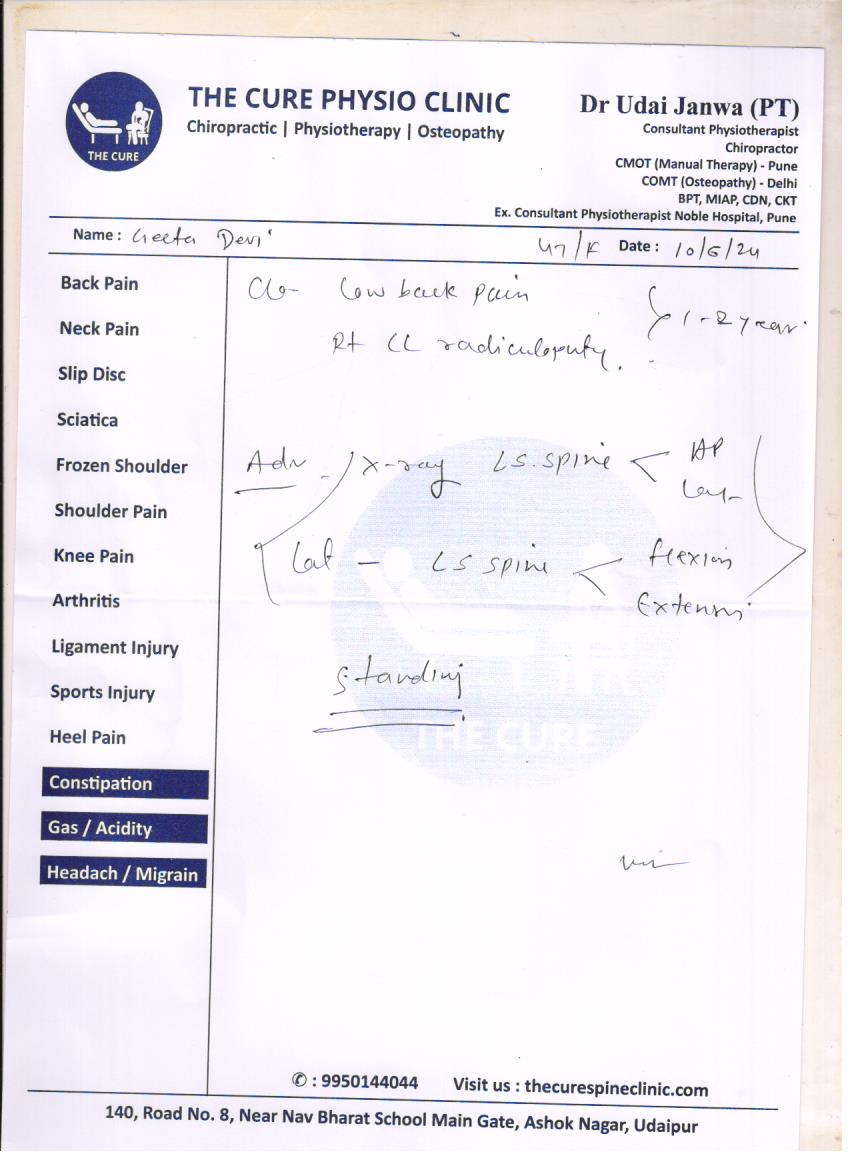 THE CURE PHYSIO CLINIC
Chiropractic | Physiotherapy | Osteopathy
THE CURE
Dr Udai Janwa (PT)
Consultant Physiotherapist
Chiropractor
CMOT (Manual Therapy) - Pune
COMT (Osteopathy) - Delhi
BPT, MIAP, CDN, CKT
Ex. Consultant Physiotherapist Noble Hospital, Pune
Name : Geeta Devi 47/F Date : 10/6/24
Back Pain
Neck Pain
Slip Disc
Sciatica
Frozen Shoulder
Shoulder Pain
Knee Pain
Arthritis
Ligament Injury
Sports Injury
Heel Pain
Constipation
Gas / Acidity
Headach / Migrain
C/o - Low back pain
Rt LL radiculopathy.
1-2 year
Adv - X-ray LS. spine < AP
Lat
Lat - LS spine < flexion
Extension
Standing
THE CURE
✆ : 9950144044 Visit us : thecurespineclinic.com
140, Road No. 8, Near Nav Bharat School Main Gate, Ashok Nagar, Udaipur